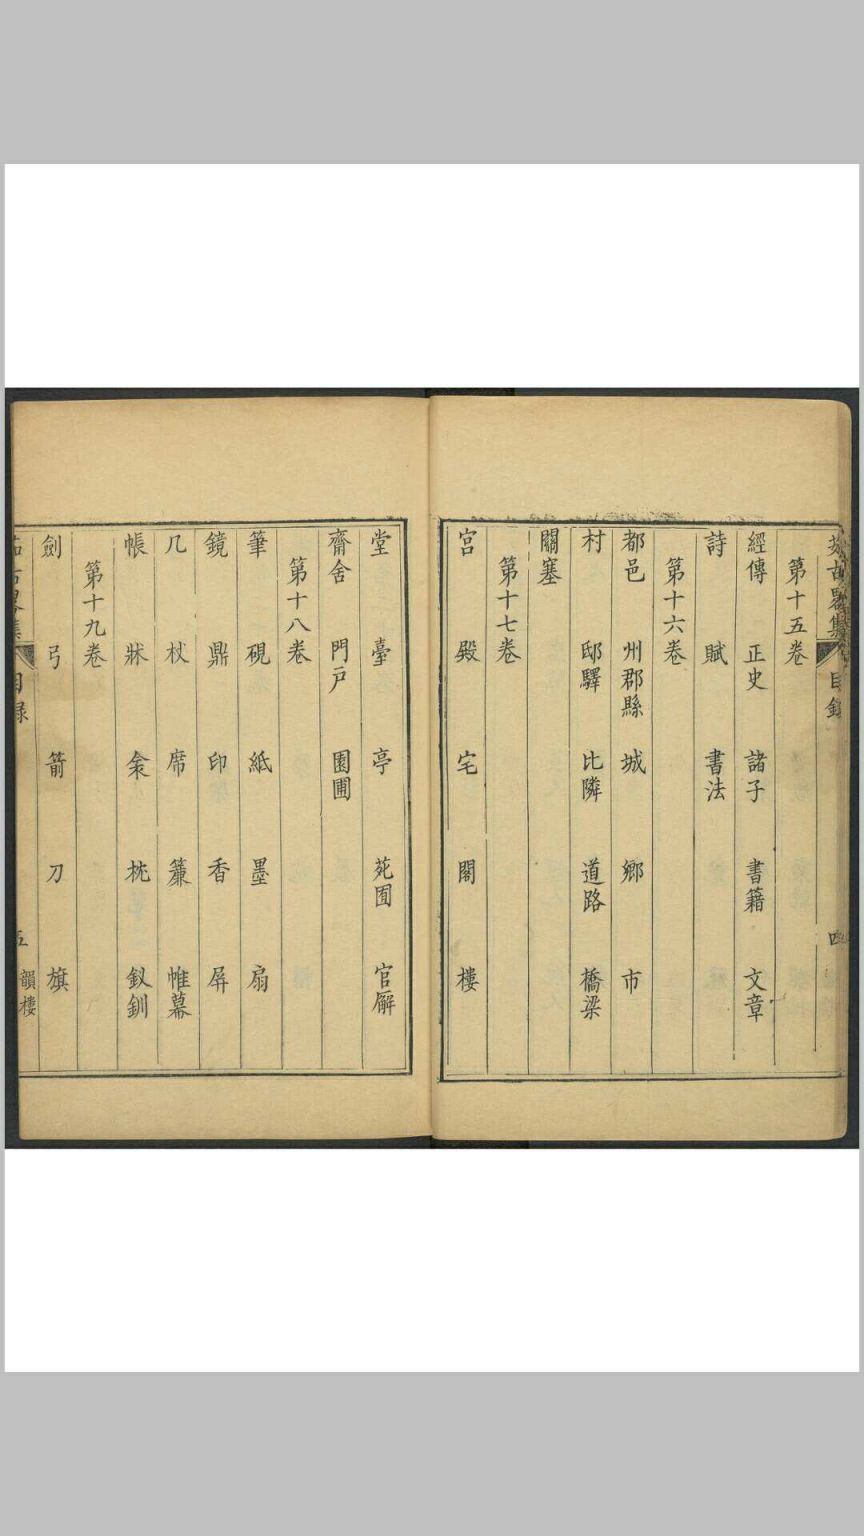 茹古畧集 目錄 四
第十五卷
經傳 正史 諸子 書籍 文章
詩 賦 書法
第十六卷
都邑 州郡縣 城 鄉 市
村 邸驛 比隣 道路 橋梁
關塞
第十七卷
宮 殿 宅 閣 樓
堂 臺 亭 苑囿 官廨
齋舍 門戸 園圃
第十八卷
筆 硯 紙 墨 扇
鏡 鼎 印 香 屏
几 杖 席 簾 帷幕
帳 牀 衾 枕 釵釧
第十九卷
劍 弓 箭 刀 旗
茹古畧集 目錄 五 韻樓